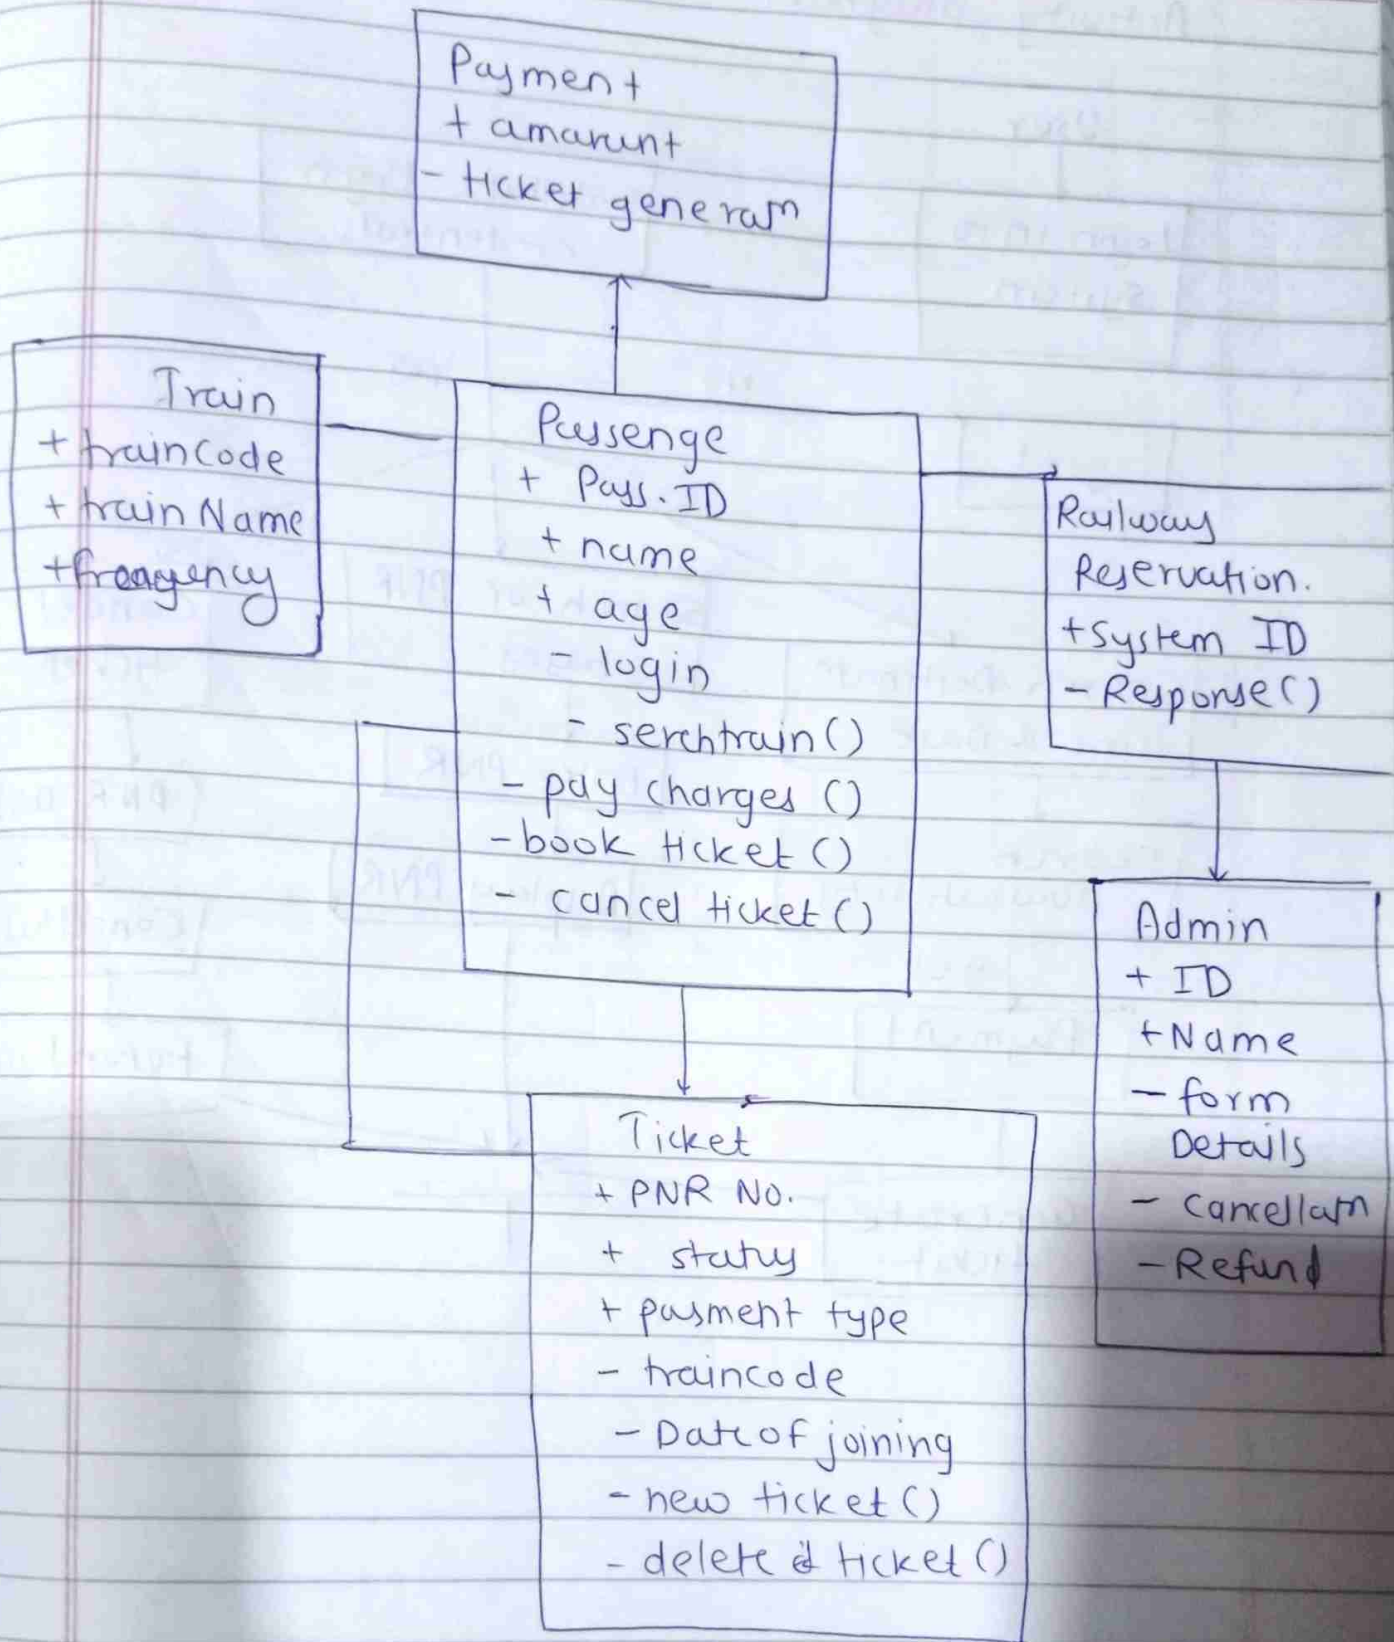 Payment
+ amarunt
- ticket generam
Train
+ traincode
+ train Name
+ freaquency
Passenge
+ Pass. ID
+ name
+ age
- login
- serchtrain ()
- pay charges ()
- book ticket ()
- cancel ticket ()
Railway
Reservation.
+ System ID
- Response ()
Admin
+ ID
+ Name
- form
Details
- cancellam
- Refund
Ticket
+ PNR NO.
+ status
+ payment type
- traincode
- Date of joining
- new ticket ()
- delete ticket ()